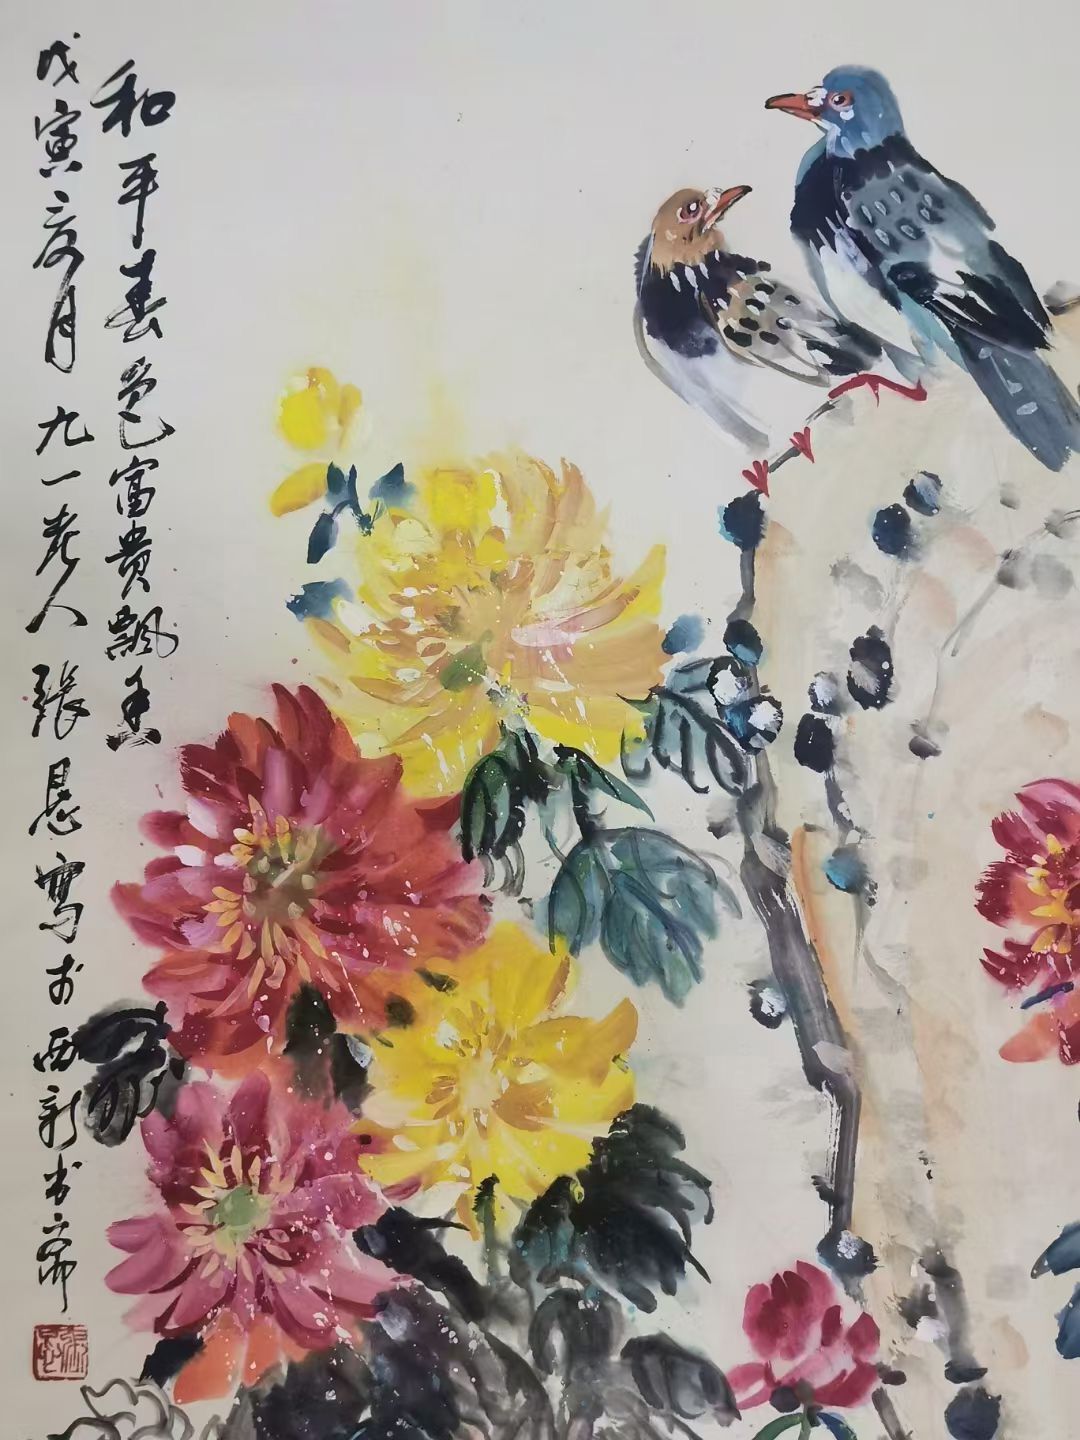 和平春色富贵飘香
戊寅之夏月九一老人张恳写于西新书斋